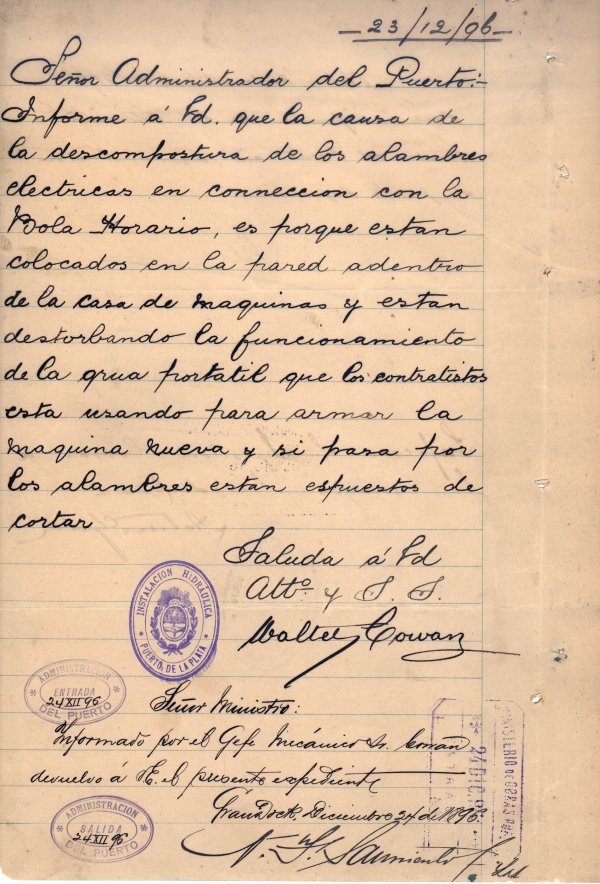 23/12/96
Señor Administrador del Puerto:-
Informe á Vd. que la causa de
la descompostura de los alambres
electricas en conneccion con la
Bola Horario, es porque estan
colocados en la pared adentro
de la casa de maquinas y estan
destorbando la funcionamiento
de la grua portatil que los contratistos
esta usando para armar la
maquina nueva y si pasa por
los alambres estan espuestos de
cortar
Saluda á Vd
Atto. y S. S.
Walter Cowan
INSTALACION HIDRÁULICA
PUERTO DE LA PLATA
ADMINISTRACION
ENTRADA
24 XII 96
DEL PUERTO
Señor Ministro:
Informado por el Gefe Mecánico Sr. Cowan
devuelvo á V.E. el presente expediente
Gran Dock, Diciembre 24 de 1896.
Sarmiento
MINISTERIO DE OBRAS PUB
24 DIC
ADMINISTRACION
SALIDA
24 XII 96
DEL PUERTO